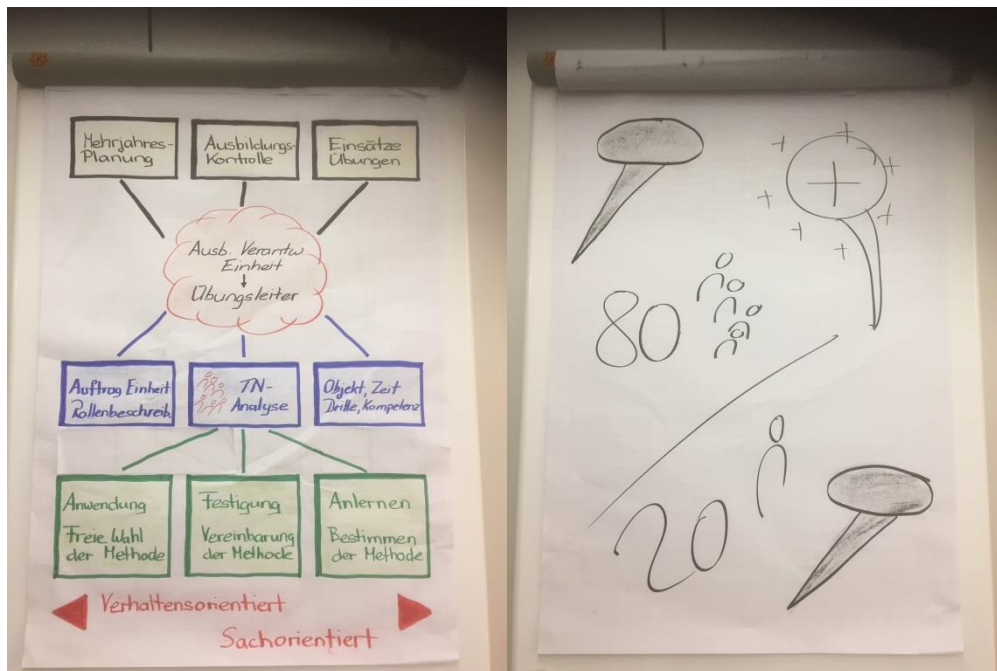 Mehrjahres-
Planung
Ausbildungs-
Kontrolle
Einsätze
Übungen
Ausb. Verantw
Einheit
↓
Übungsleiter
Auftrag Einheit
Rollenbeschreib.
TN-
Analyse
Objekt, Zeit
Dritte, Kompetenz
Anwendung
Freie Wahl
der Methode
Festigung
Vereinbarung
der Methode
Anlernen
Bestimmen
der Methode
Verhaltensorientiert
Sachorientiert
80
20